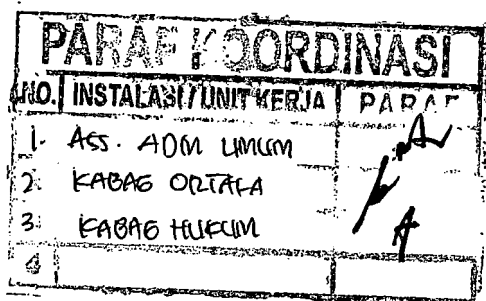 PARAF KOORDINASI
NO. INSTALASI / UNIT KERJA PARAF
1. ASS. ADM UMUM
2. KABAG ORTALA
3. KABAG HUKUM
4